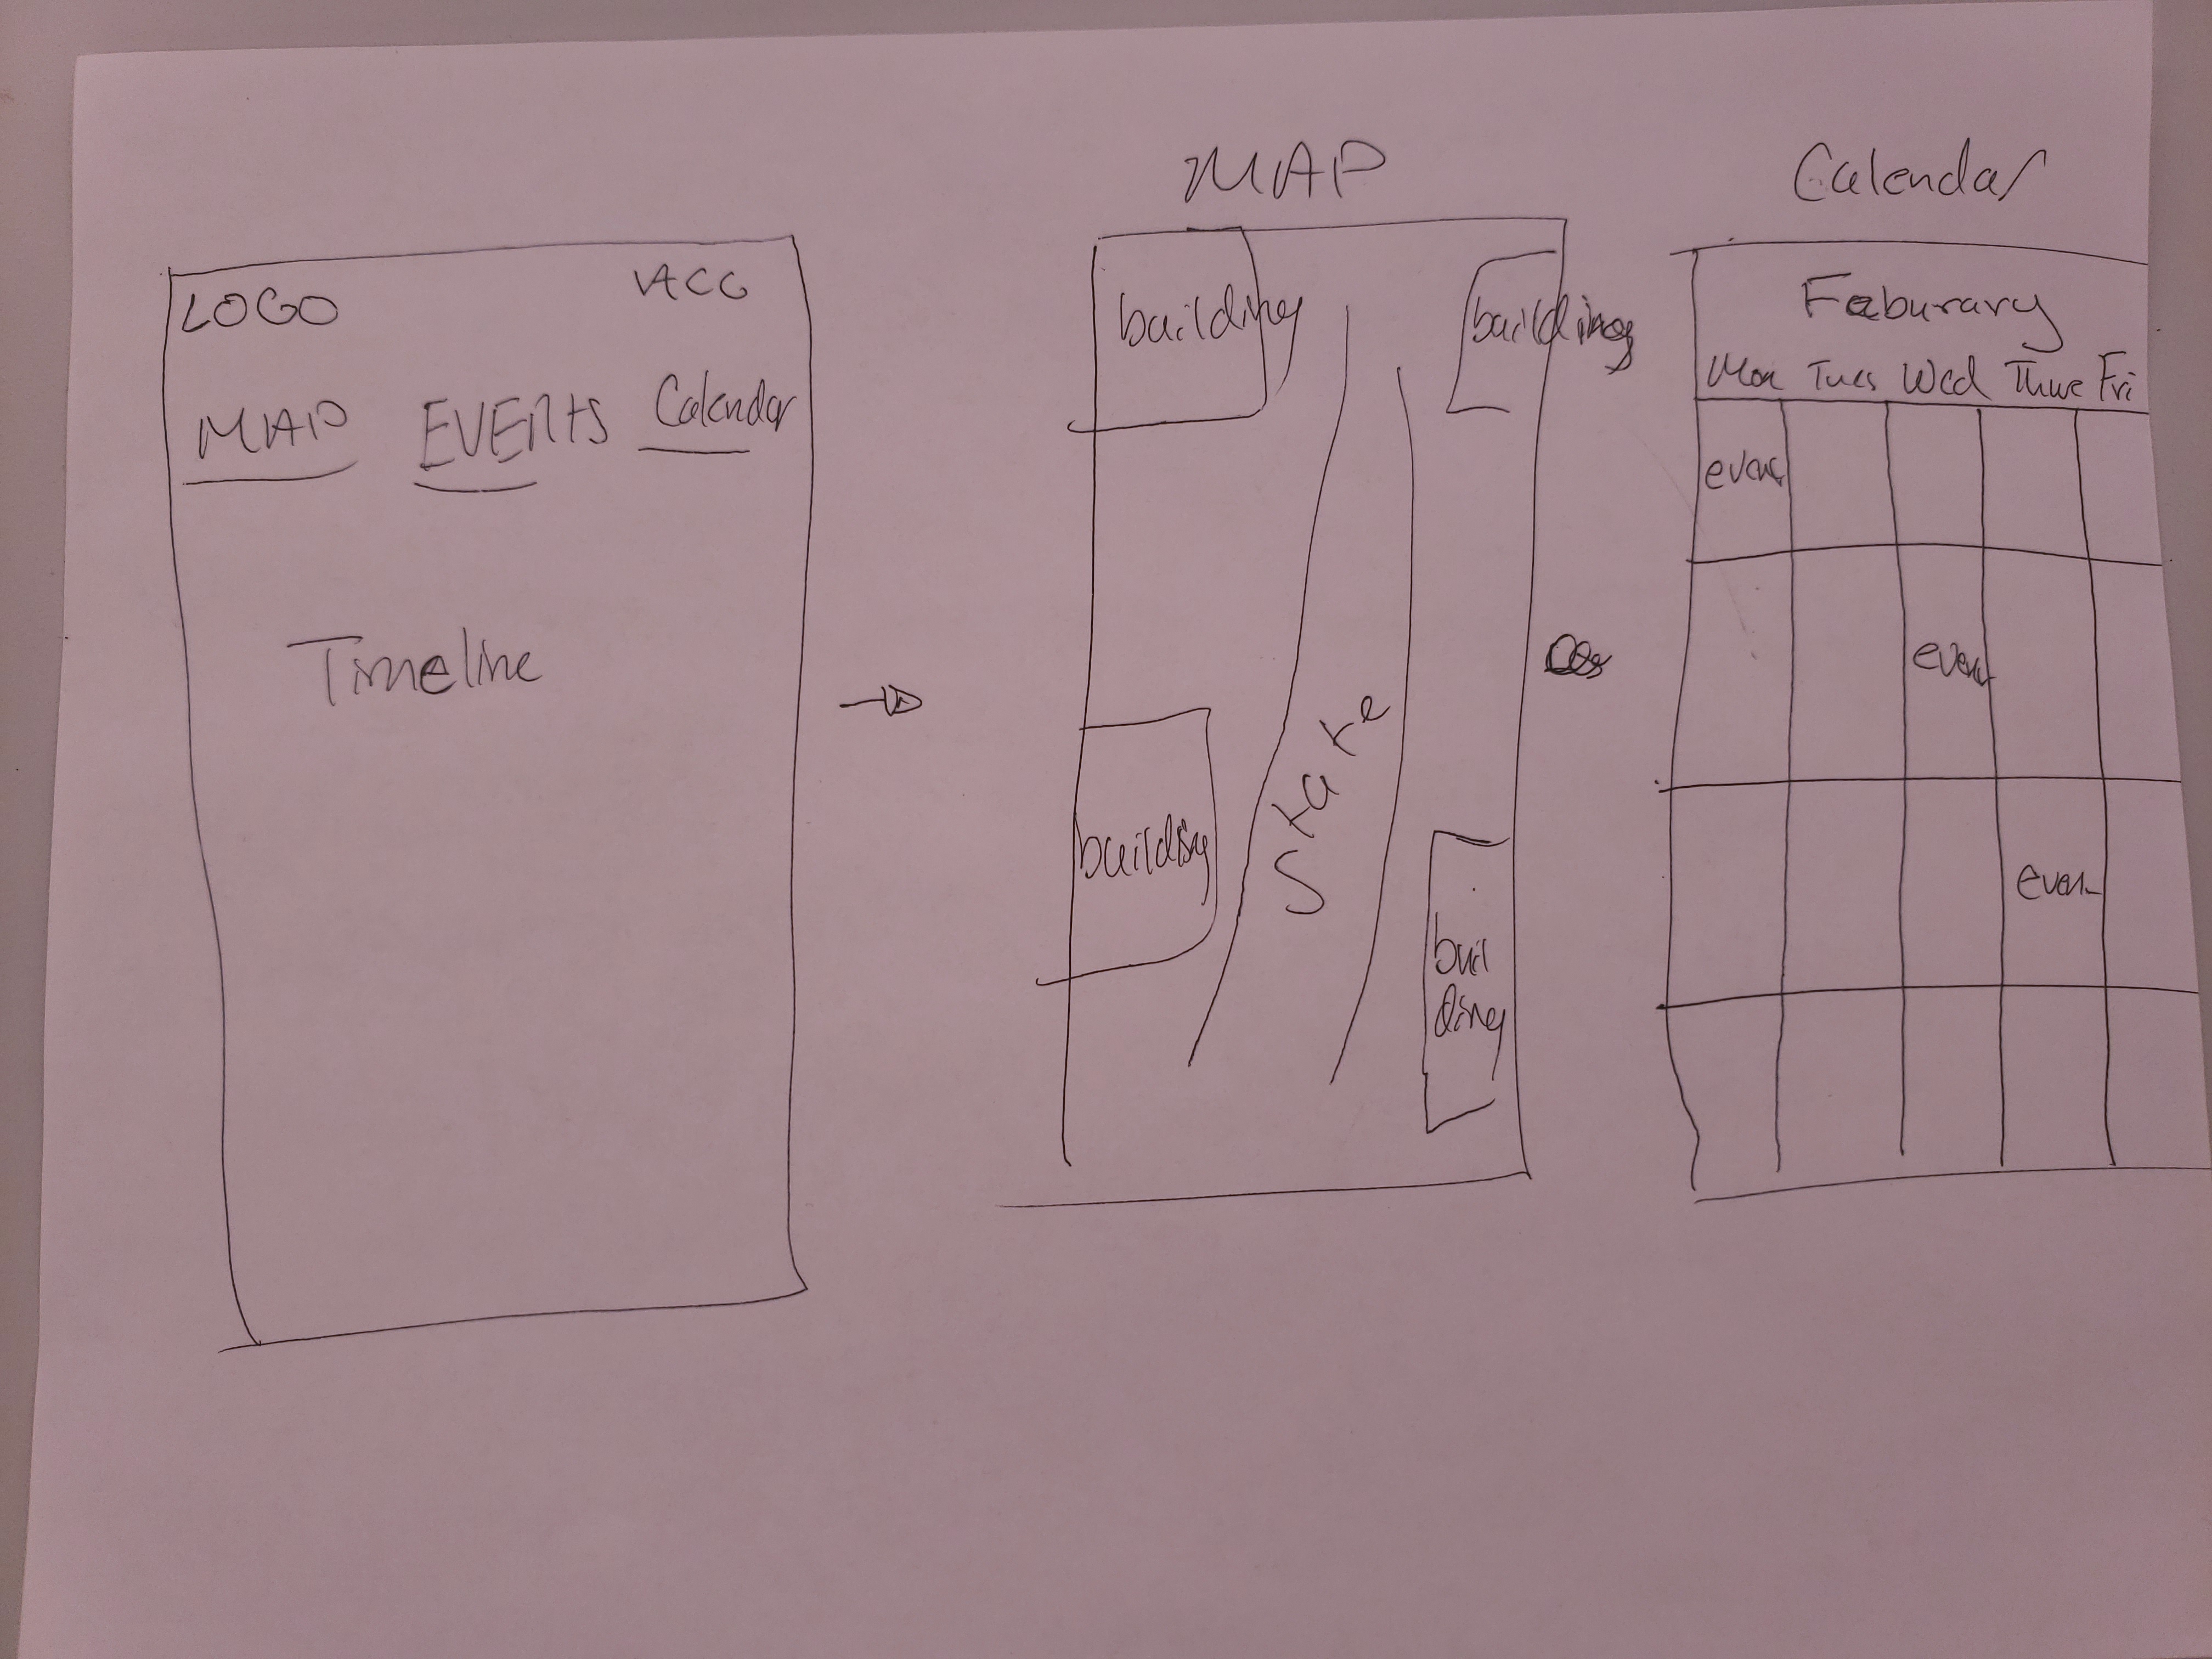 LOGO ACC
MAP EVENtS Calendar
Timeline
MAP
building
building
building
State
buil
ding
Calendar
Feburary
Mon Tues Wed Thur Fri
event
event
event